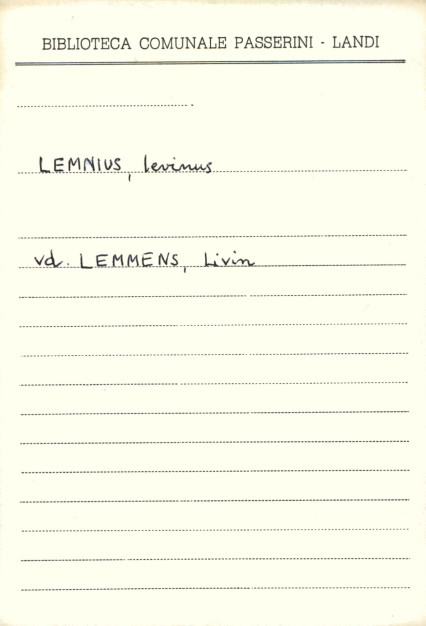 BIBLIOTECA COMUNALE PASSERINI - LANDI
LEMNIUS, levinus
vd. LEMMENS, Livin